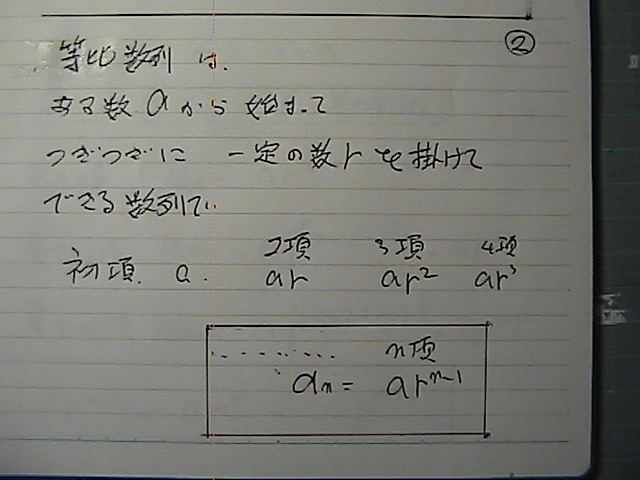 ②
等比数列 は、
ある数 a から 始まって
つぎつぎに 一定の数 r を 掛けて
できる 数列で、
2項 3項 4項
初項. a. ar ar² ar³
......... n項
aₙ = arⁿ⁻¹